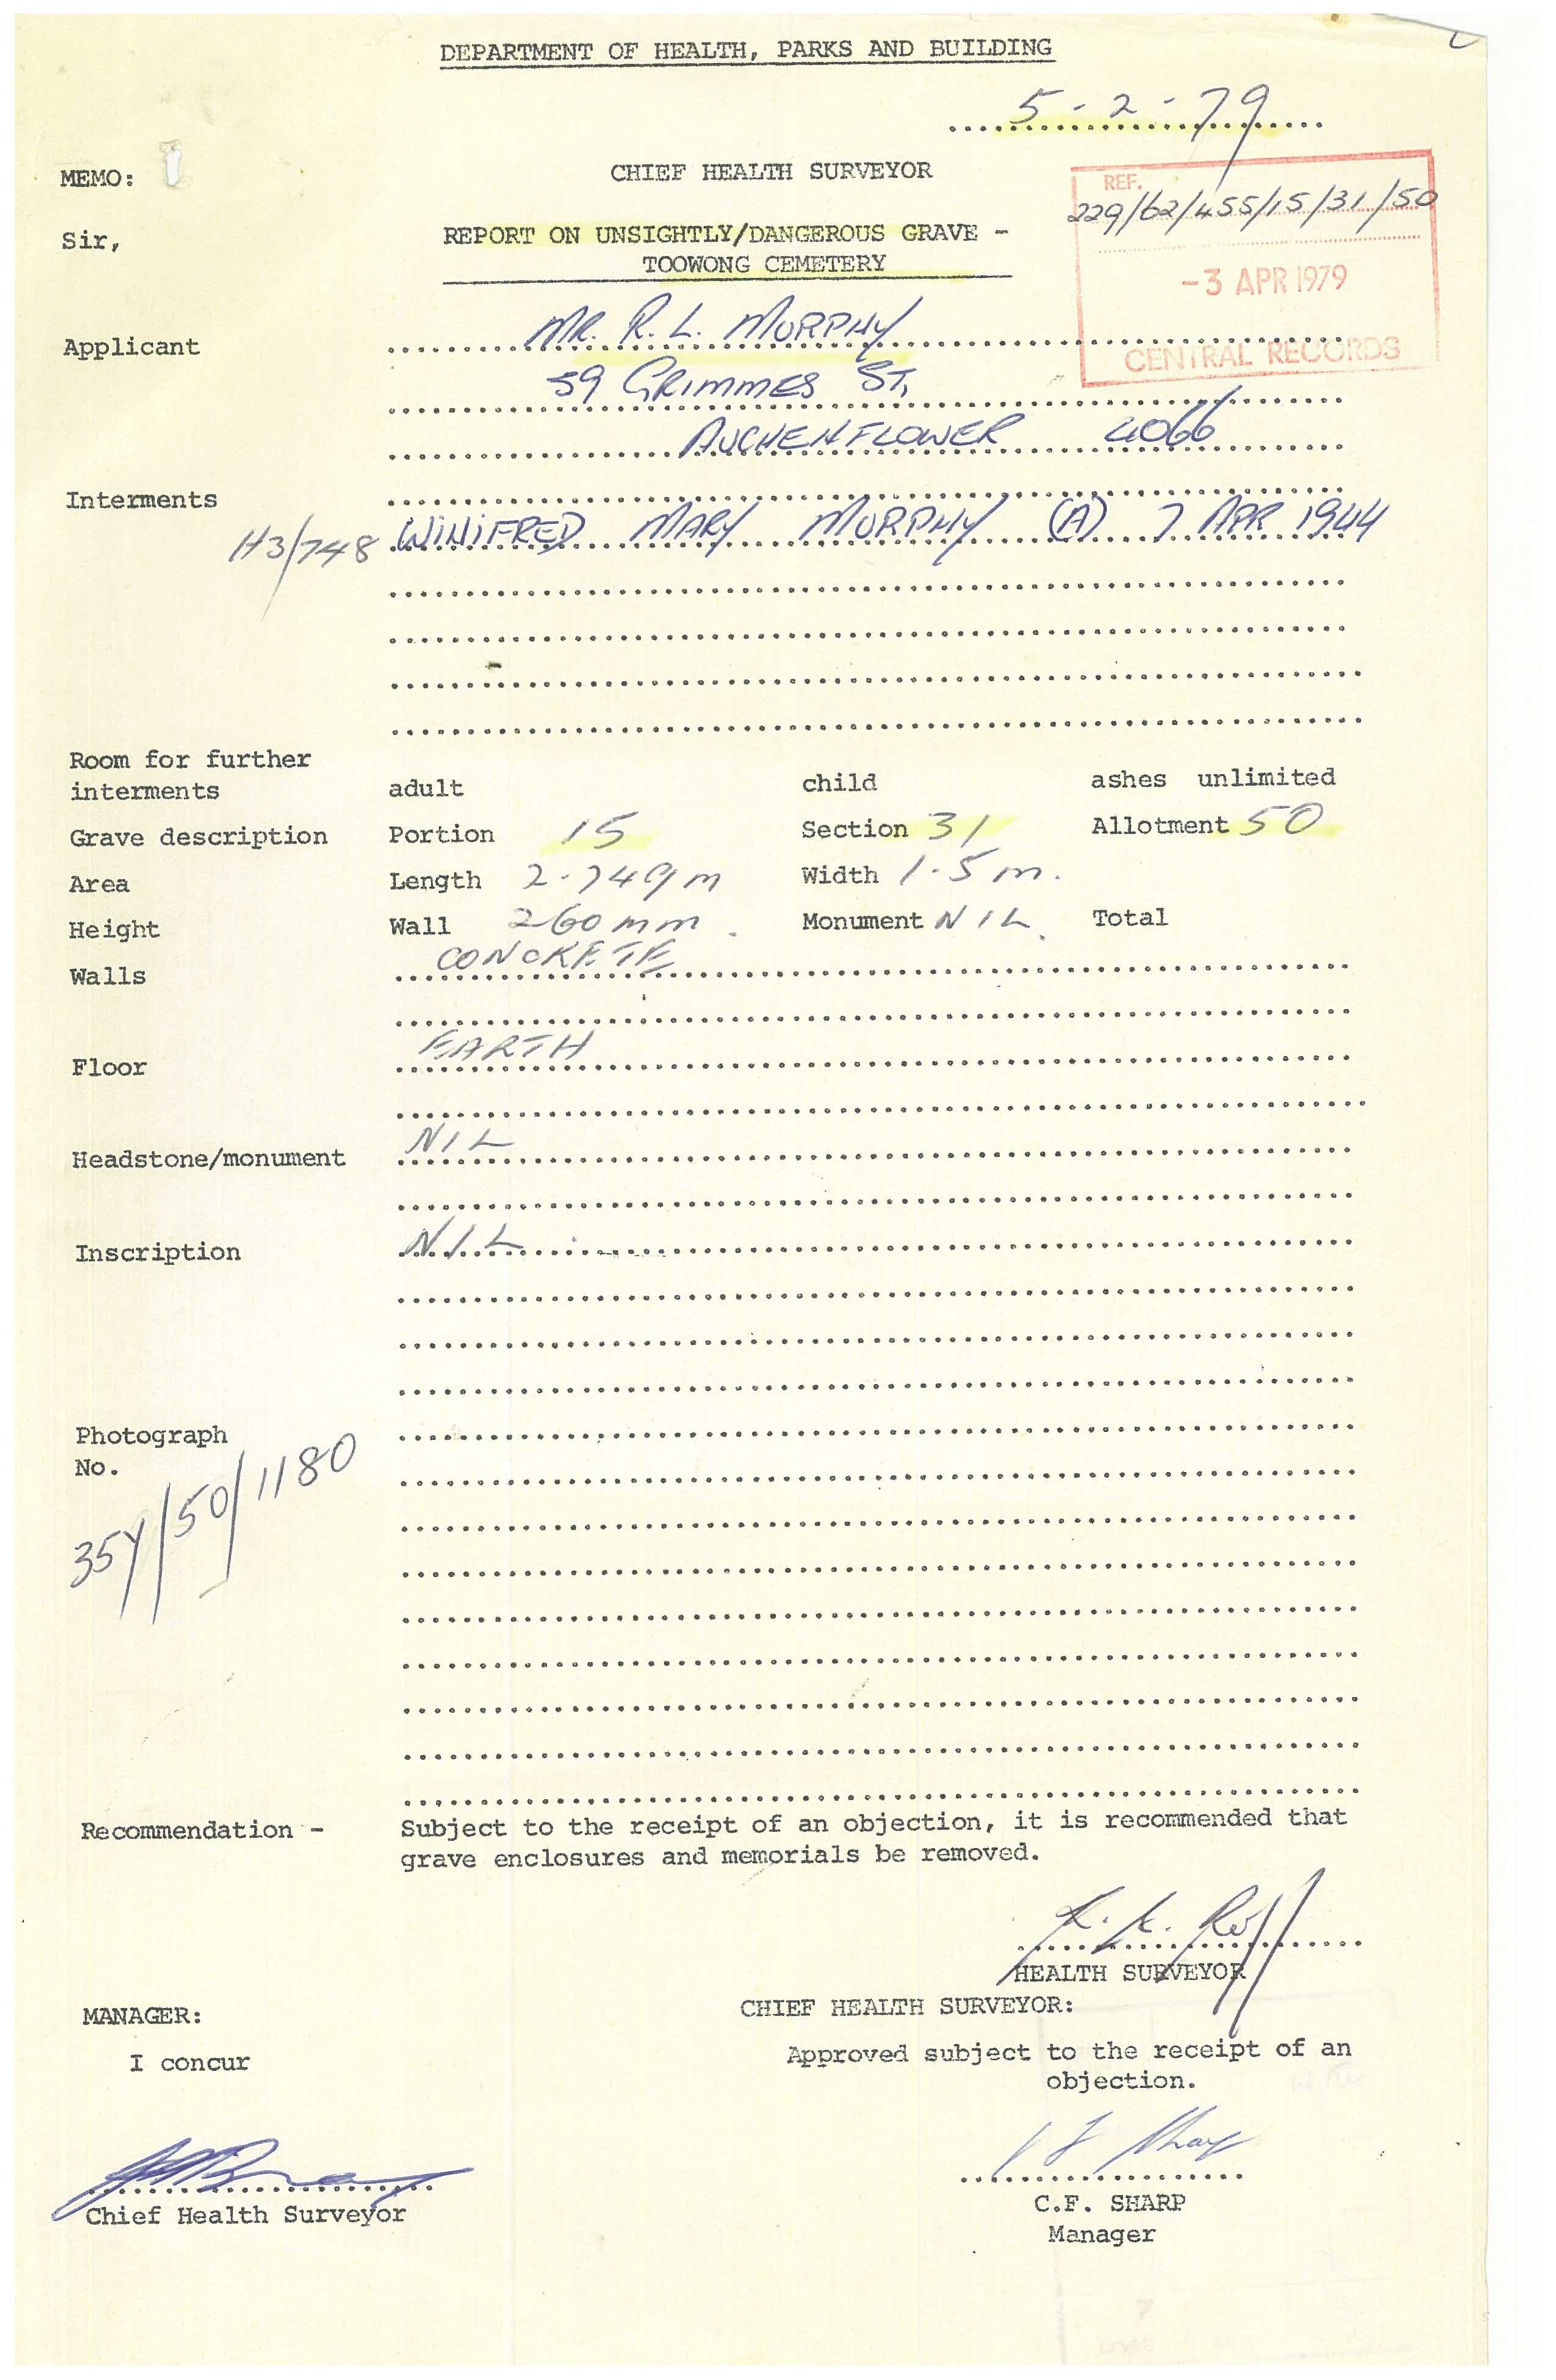 DEPARTMENT OF HEALTH, PARKS AND BUILDING
5-2-79
MEMO:
CHIEF HEALTH SURVEYOR
REF.
229/62/455/15/31/50
Sir,
REPORT ON UNSIGHTLY/DANGEROUS GRAVE -
TOOWONG CEMETERY
-3 APR 1979
CENTRAL RECORDS
Applicant MR. R. L. MURPHY
59 GRIMMES ST,
AUCHENFLOWER 4066
Interments
H3/748 WINIFRED MARY MURPHY (A) 7 APR 1944
Room for further
interments adult child ashes unlimited
Grave description Portion 15 Section 31 Allotment 50
Area Length 2.749m Width 1.5m.
Height Wall 260mm. Monument NIL. Total
Walls CONCRETE
Floor EARTH
Headstone/monument NIL
Inscription NIL
Photograph
No.
35Y/50/1180
Recommendation - Subject to the receipt of an objection, it is recommended that
grave enclosures and memorials be removed.
HEALTH SURVEYOR
MANAGER:
CHIEF HEALTH SURVEYOR:
I concur
Approved subject to the receipt of an
objection.
Chief Health Surveyor
C.F. SHARP
Manager